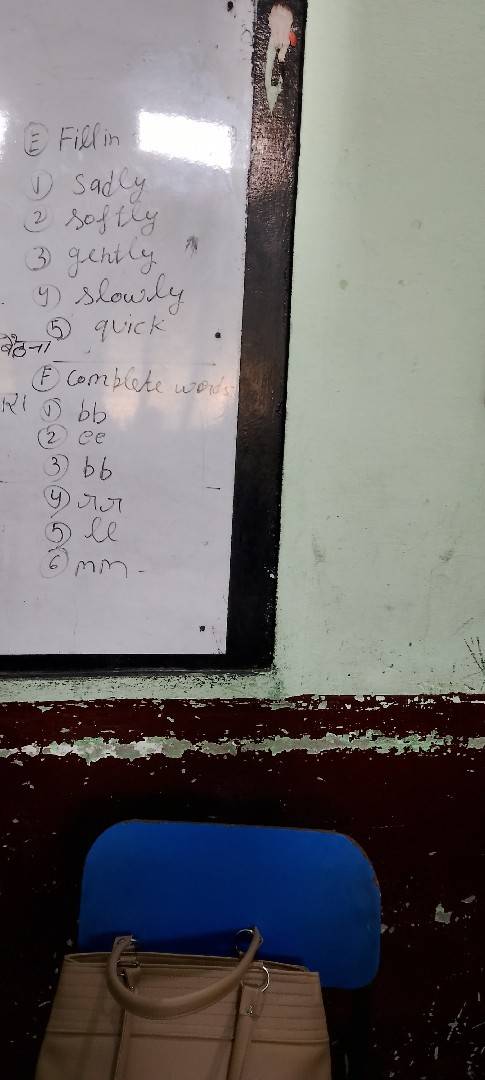 Ⓔ Fill in
① Sadly
② softly
③ gently
④ slowly
⑤ quick
बैठना
Ⓕ Complete words
① bb
② ee
③ bb
④ rr
⑤ ll
⑥ mm